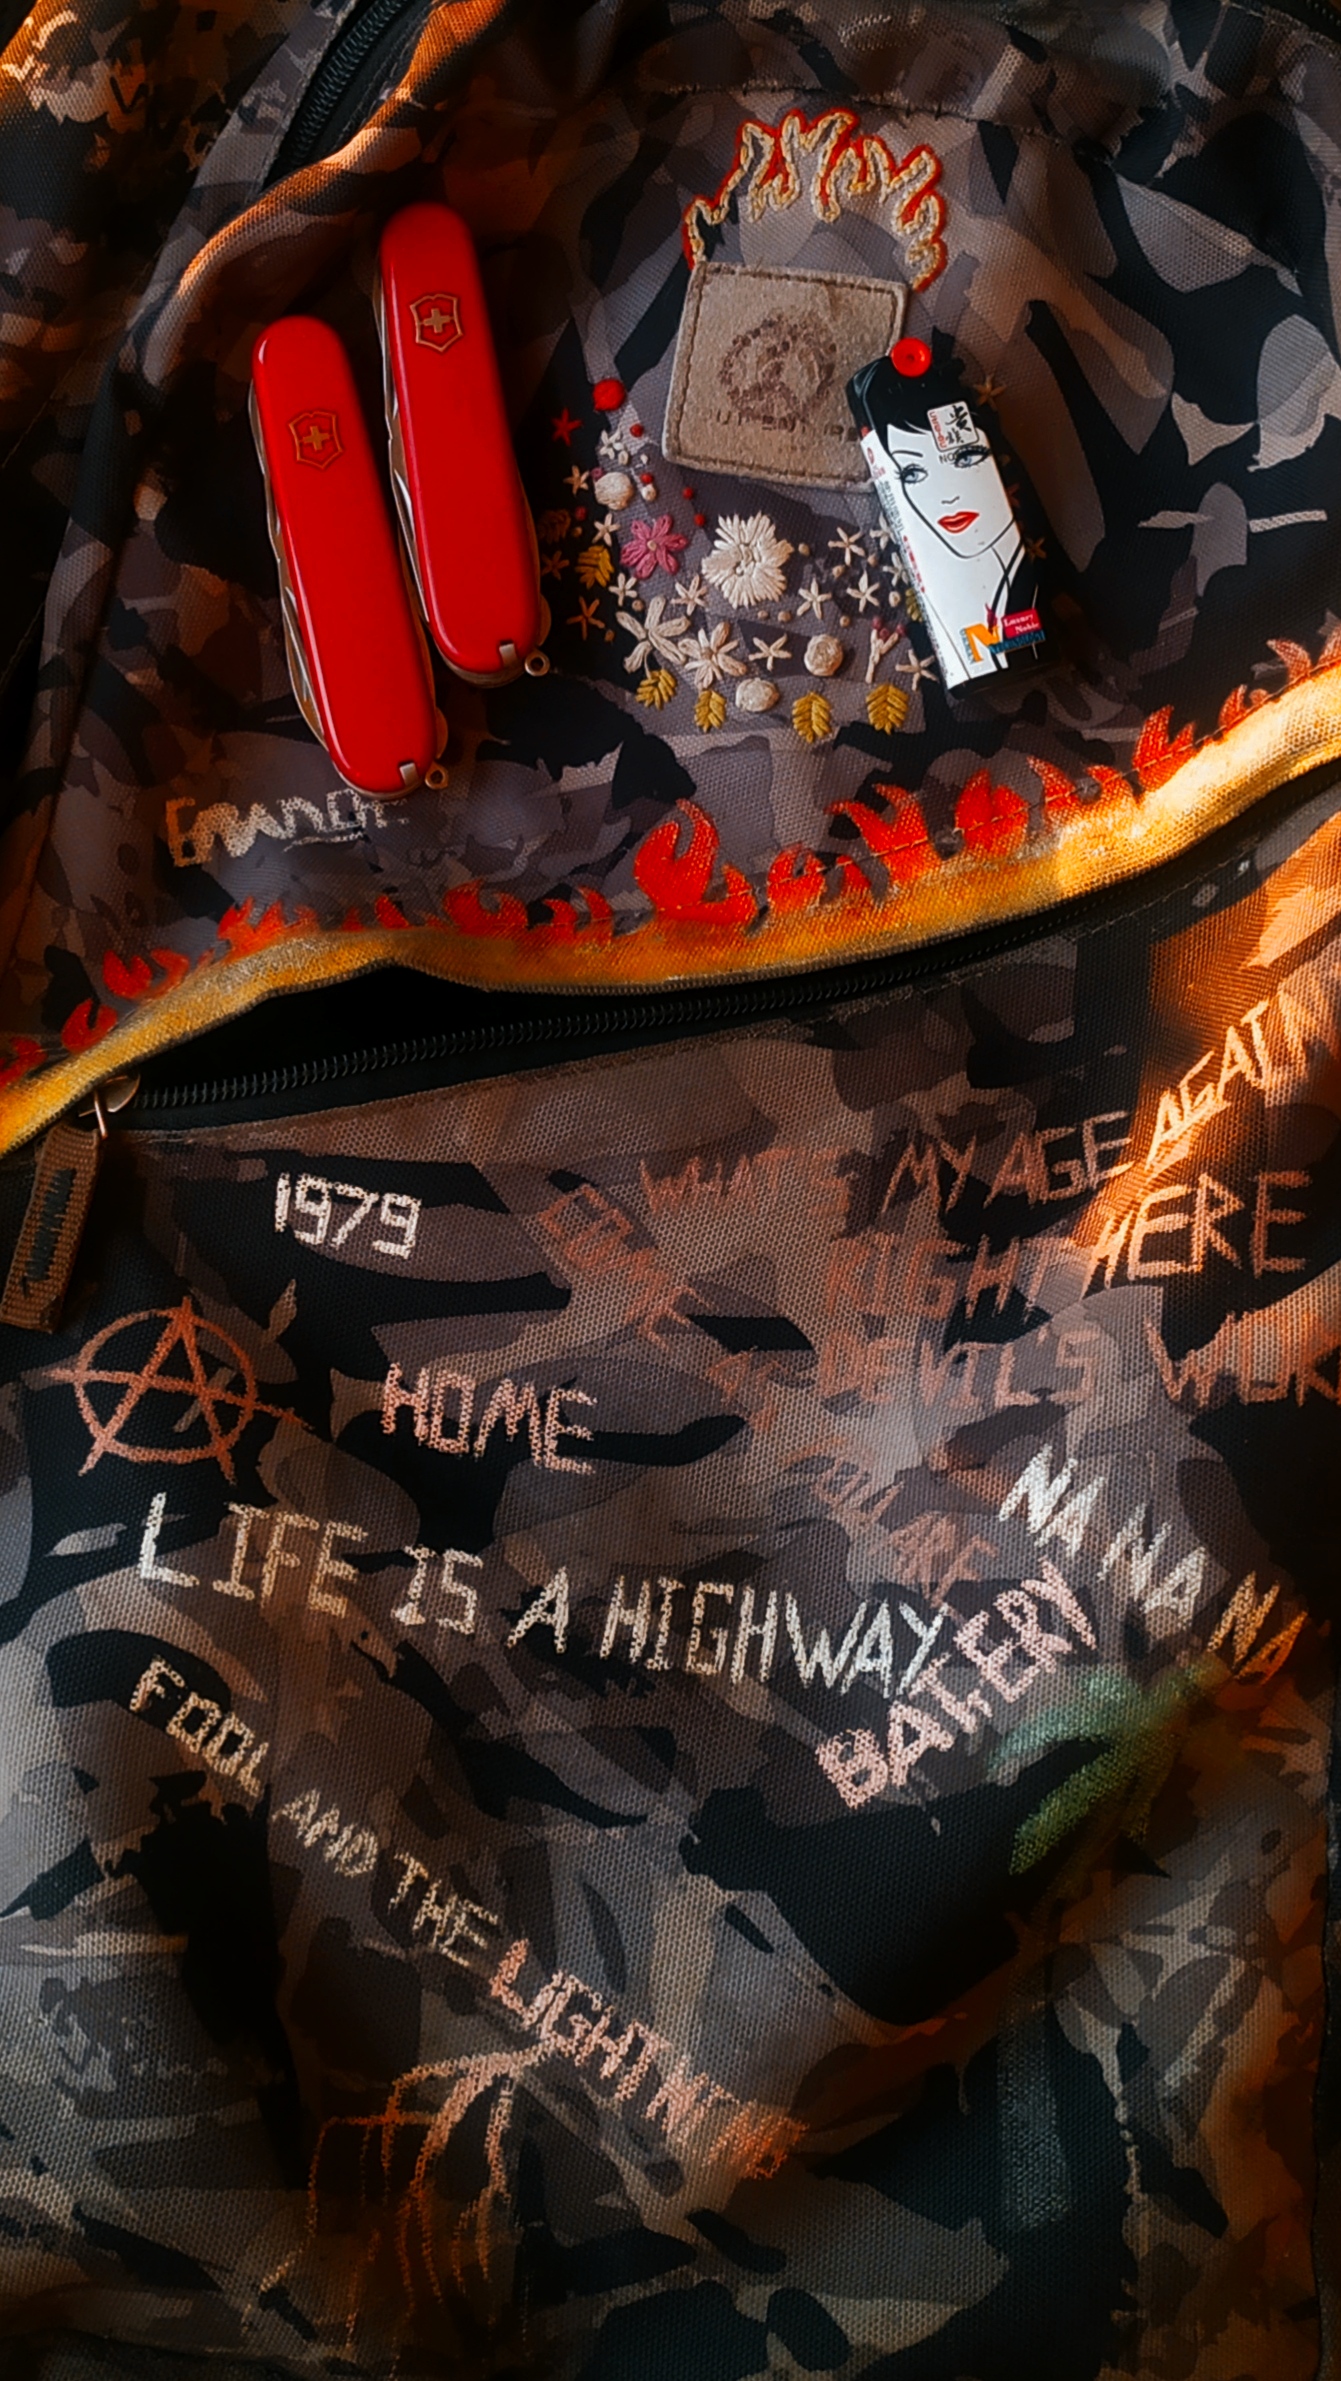 貴
NO
Luxury
Noble
1979
WHAT'S MY AGE AGAIN
COME
RIGHT HERE
DEVIL'S WORK
HOME
YOU ARE
NA NA NA
LIFE IS A HIGHWAY
BATTERY
FOOL AND THE LIGHTNING